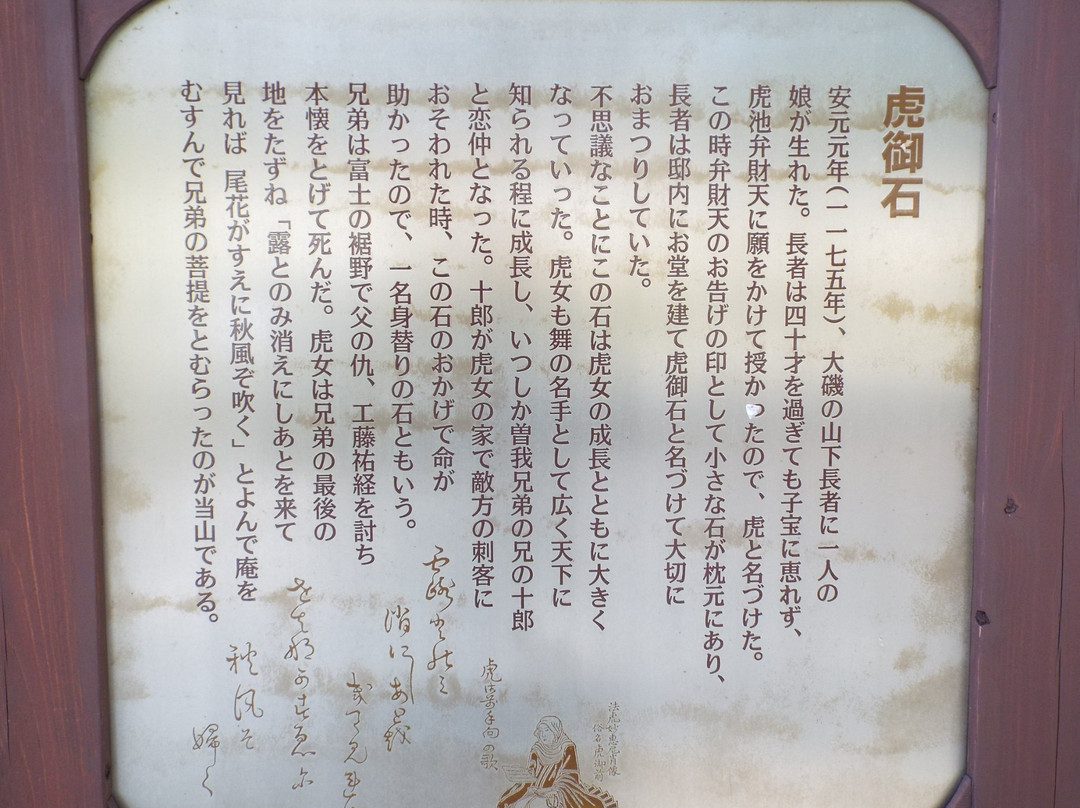 虎御石
安元元年(一一七五年)、大磯の山下長者に一人の
娘が生れた。長者は四十才を過ぎても子宝に恵れず、
虎池弁財天に願をかけて授かったので、虎と名づけた。
この時弁財天のお告げの印として小さな石が枕元にあり、
長者は邸内にお堂を建て虎御石と名づけて大切に
おまつりしていた。
不思議なことにこの石は虎女の成長とともに大きく
なっていった。虎女も舞の名手として広く天下に
知られる程に成長し、いつしか曽我兄弟の兄の十郎
と恋仲となった。十郎が虎女の家で敵方の刺客に
おそわれた時、この石のおかげで命が
助かったので、一名身替りの石ともいう。
兄弟は富士の裾野で父の仇、工藤祐経を討ち
本懐をとげて死んだ。虎女は兄弟の最後の
地をたずね「露とのみ消えにしあとを来て
見れば 尾花がすえに秋風ぞ吹く」とよんで庵を
むすんで兄弟の菩提をとむらったのが当山である。
法虎妙恵尼肖像
俗名虎御前
虎御前手向の歌
消にしあと越
秋風そ